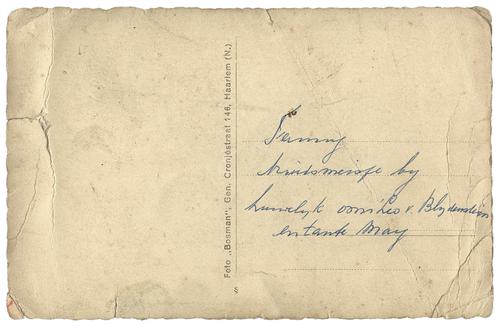 Foto „Bosman”, Gen. Cronjéstraat 146, Haarlem (N.)
§
Fanny
bruidsmeisje by
huwelyk oom Leo v. Blydenstein
en tante May